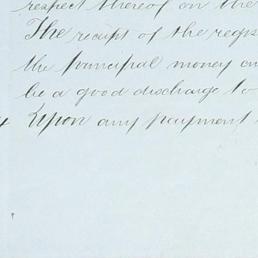 respect thereof on the
The receipt of the regis
the principal money on
be a good discharge to
Upon any payment